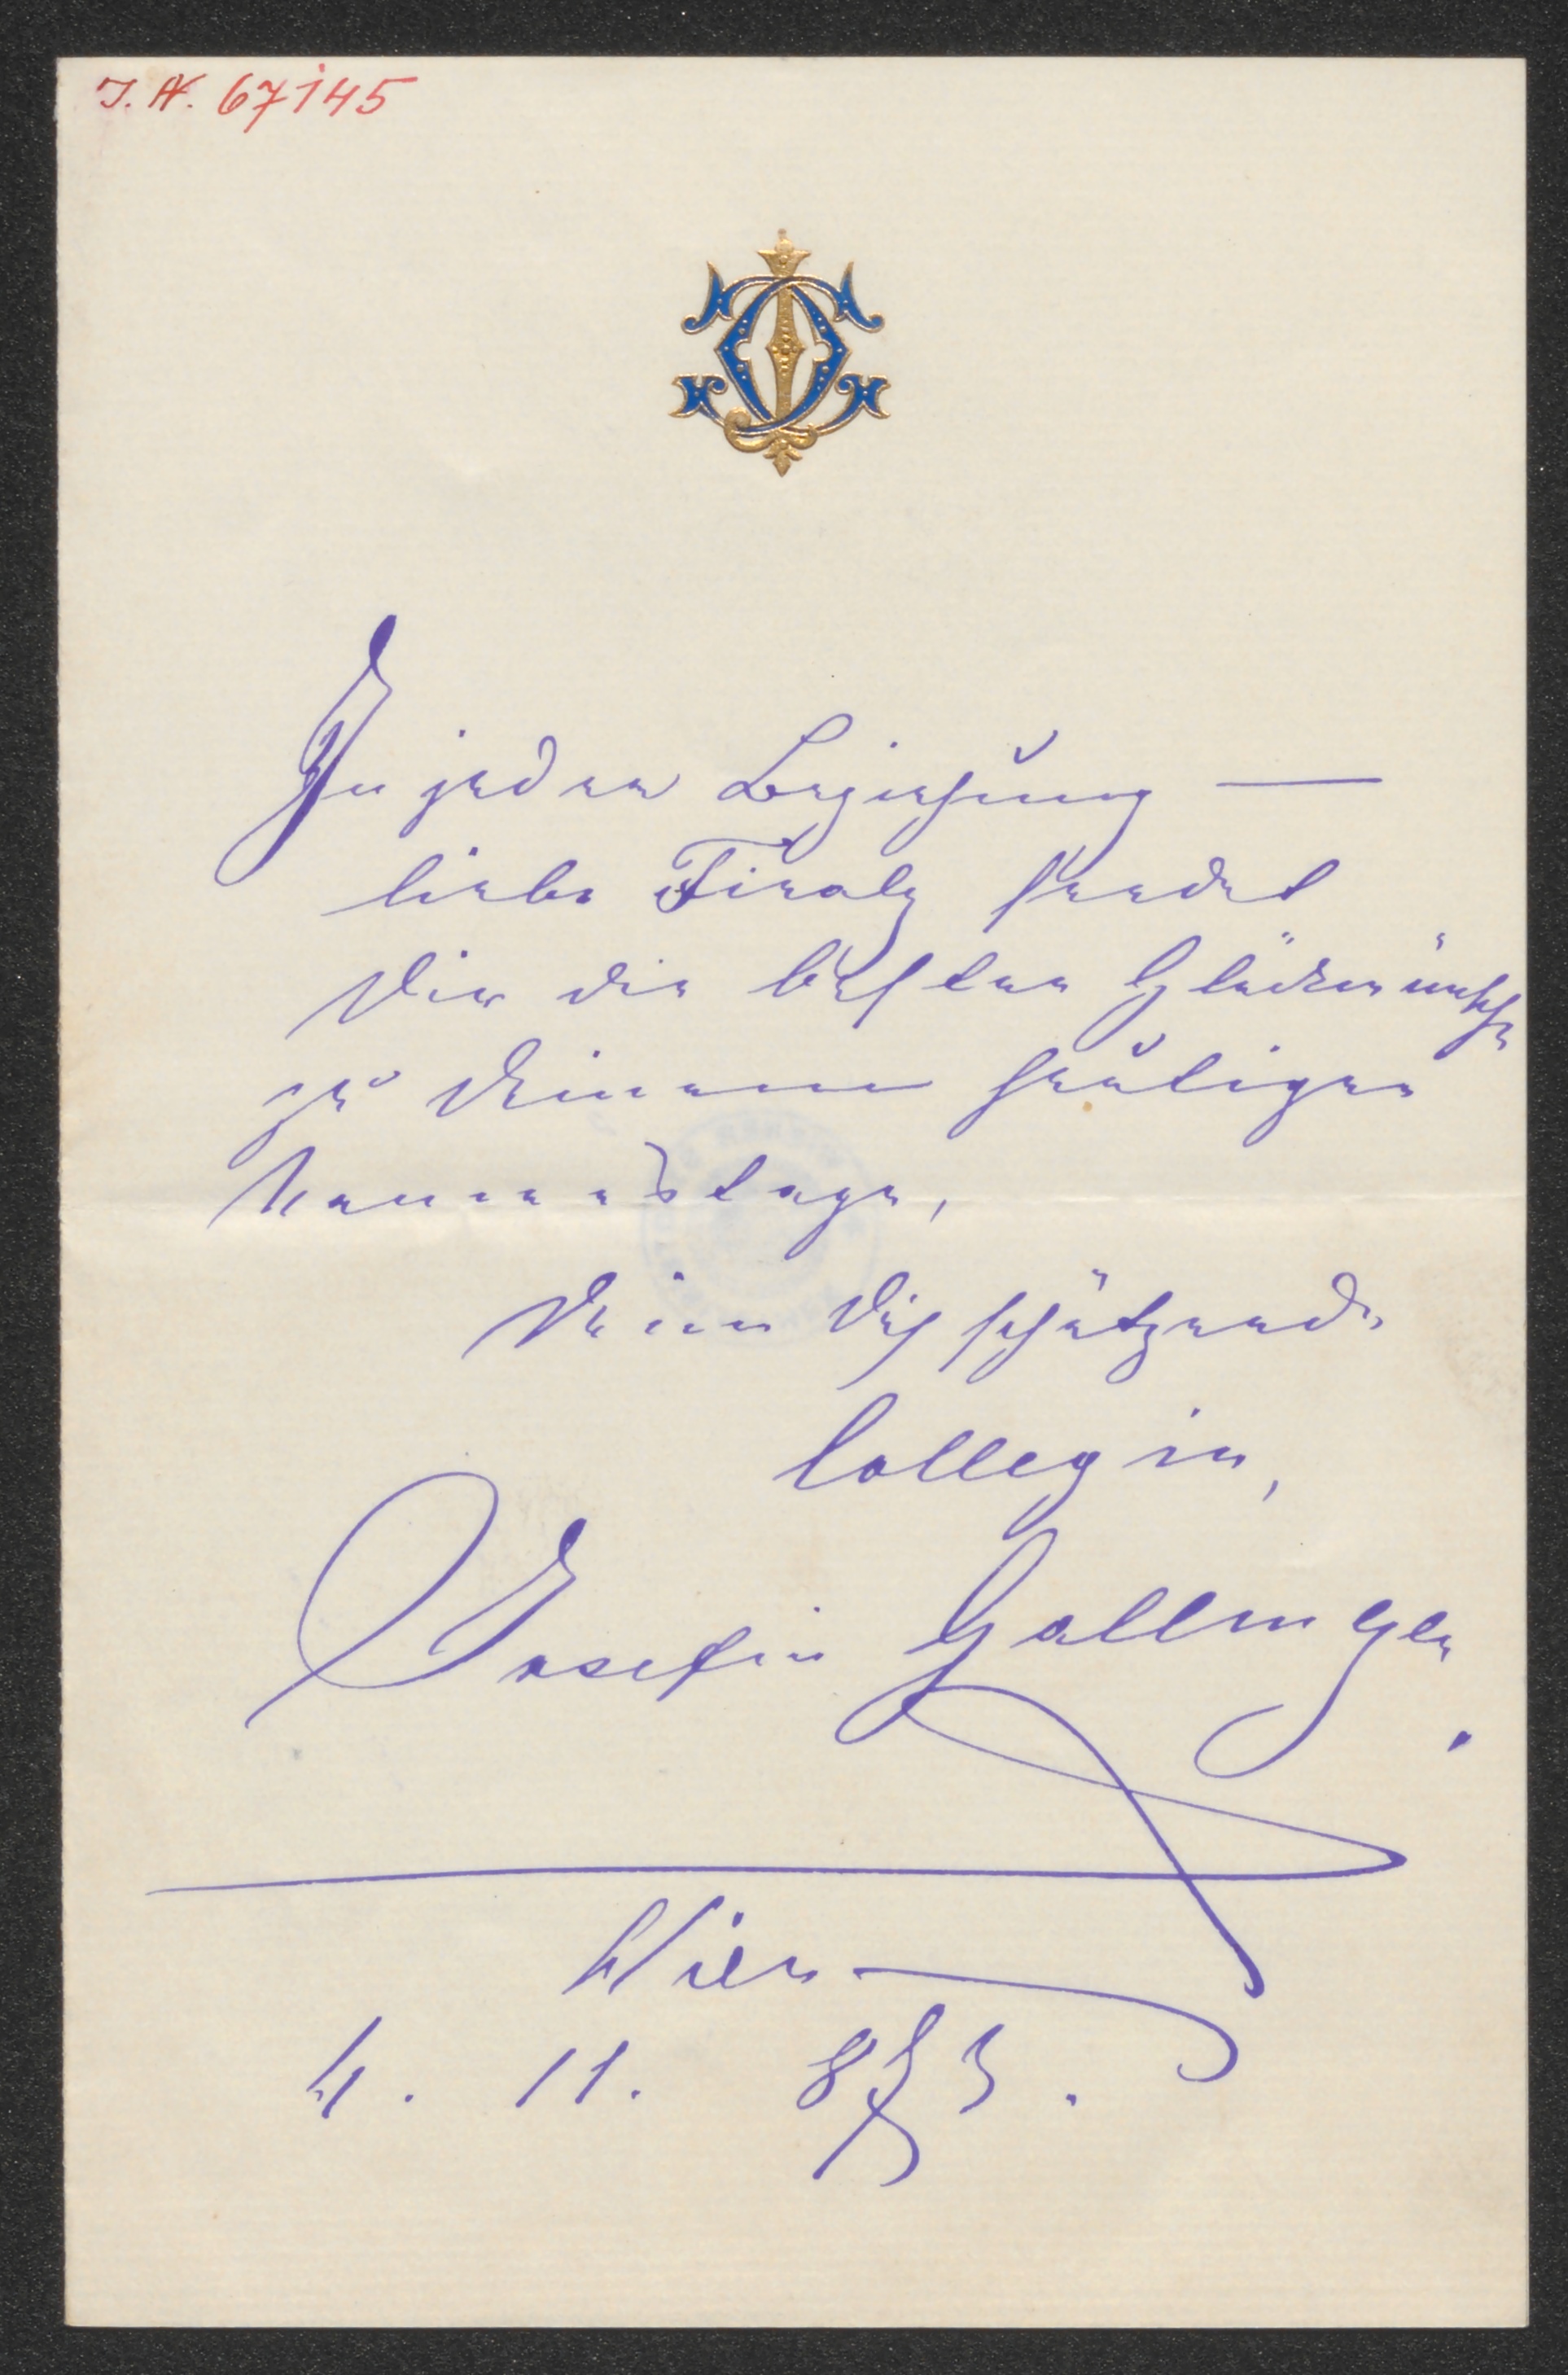 I. N. 67145
In jeder Beziehung —
liebe Finaly sendet
Dir die besten Glückwünsche
zu Deinem heutigen
Namenstage,
Deine Dich schätzende
Collegin,
Josefin Gallmeyer.
Wien
4. 11. 873.